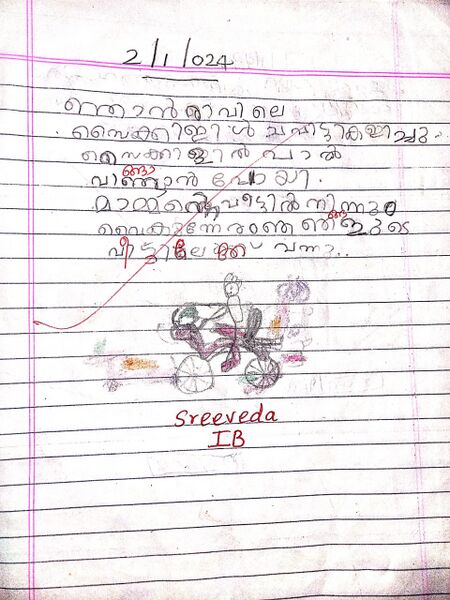 2/1/024
ഞാൻ രാവിലെ
സൈക്കിളിൽ ചവിട്ടികളിച്ചു.
സൈക്കിളിൽ പാൽ
വാങ്ങാൻ പോയി.
മാമ്മന്റെ വീട്ടിൽ നിന്നും
വൈകുന്നേരം ഞങ്ങളുടെ
വീട്ടിലേക്ക് വന്നു..
Sreeveda
IB